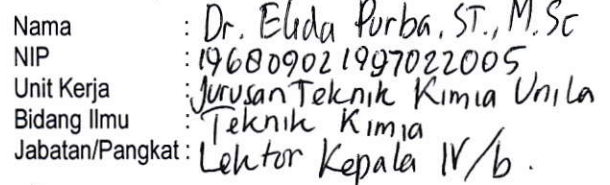 Nama : Dr. Elida Purba, ST., M.Sc
NIP : 196809021997022005
Unit Kerja : Jurusan Teknik Kimia Unila
Bidang Ilmu : Teknik Kimia
Jabatan/Pangkat : Lektor Kepala IV/b.